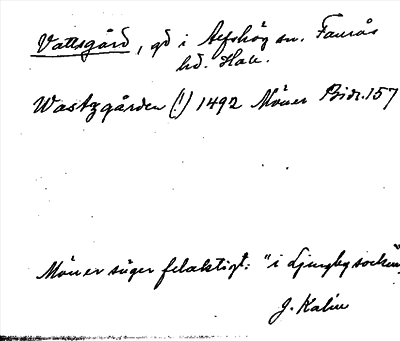 Vattsgård, gd i Alfshög sn. Faurås
hd. Hall.
Wastzgården (!) 1492 Möner Bidr. 157
Möner säger felaktigt: "i Ljungby socken"
J. Kalén